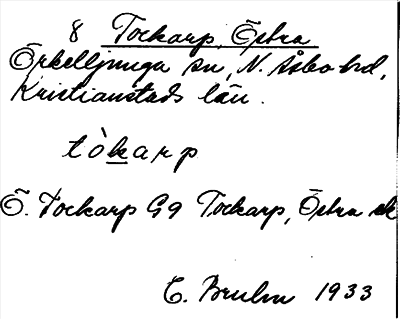 8 Tockarp, Östra
Örkelljunga sn, N. Åsbo hd,
Kristianstads län.
tòkarp
Ö. Tockarp G9 Tockarp, Östra ek
E. Bruhn 1933